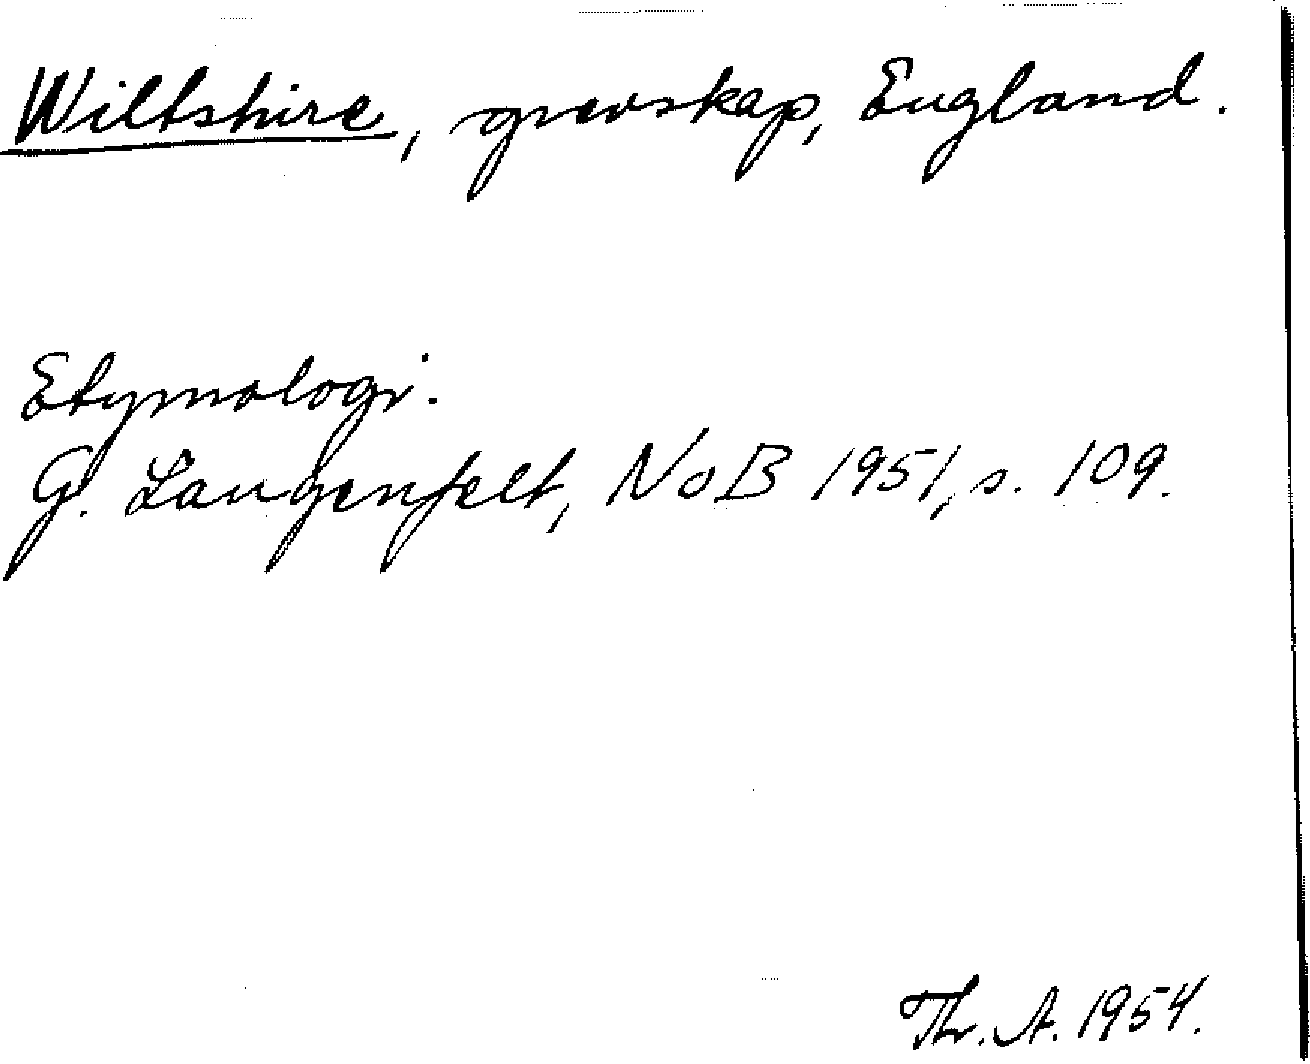 Wiltshire, grevskap, England.
Etymologi.
G. Langenfelt, NoB 1951, s. 109.
Th. A. 1954.